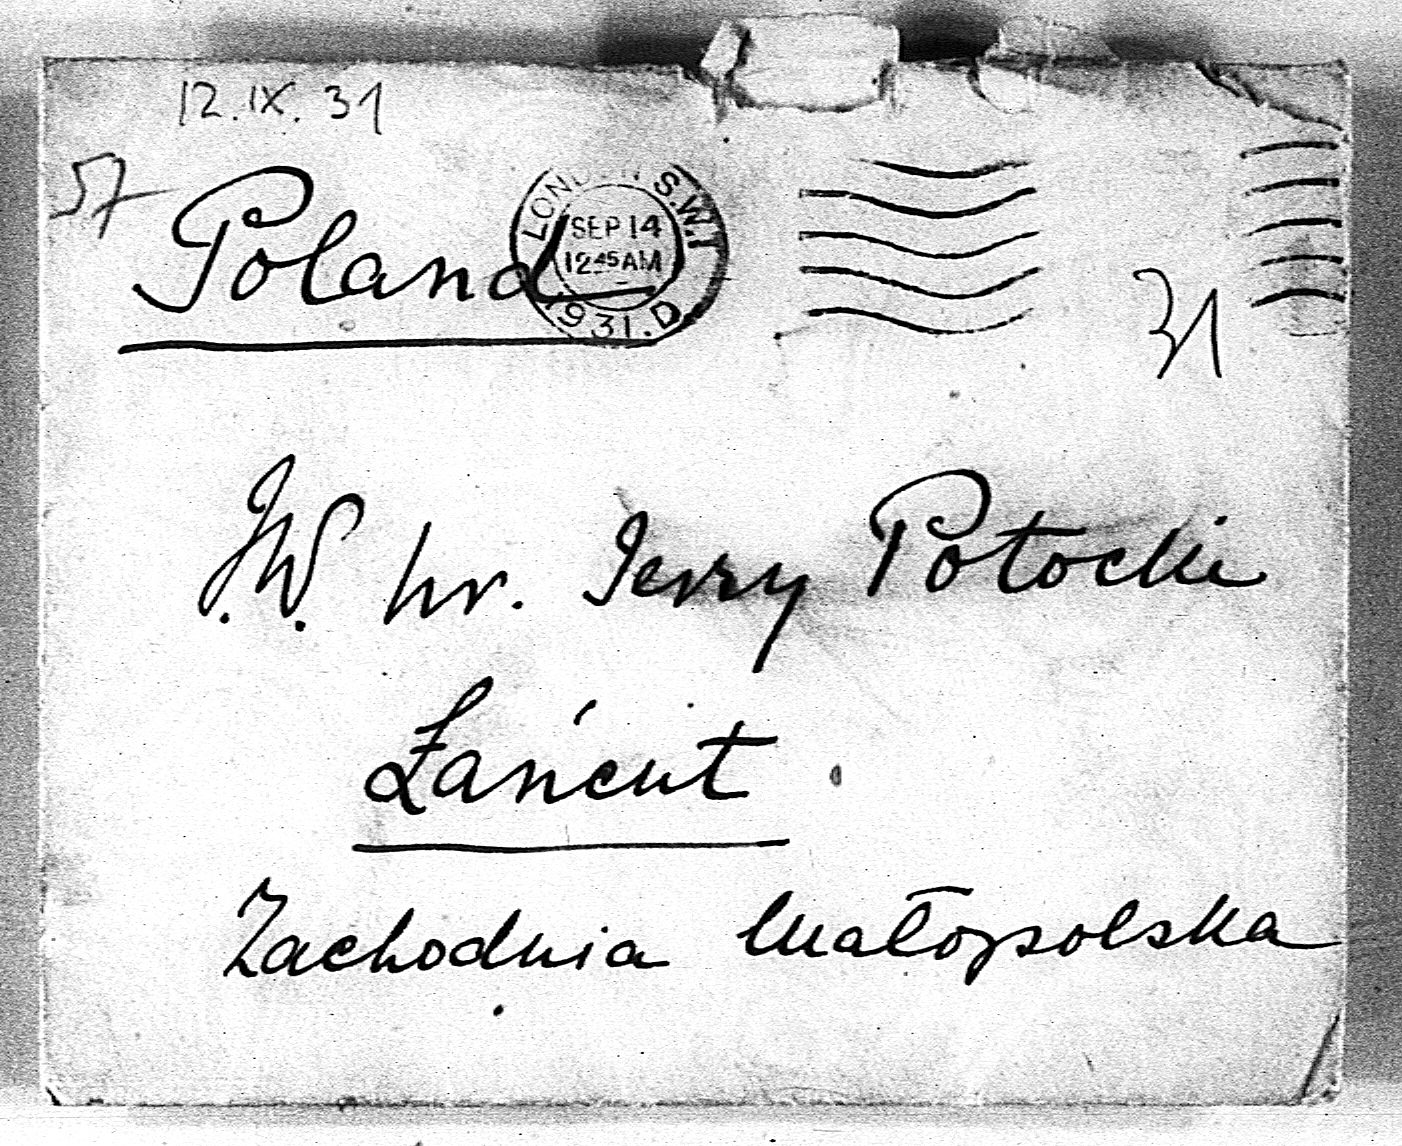 12.IX.31
57
Poland
LONDON S.W.1
SEP 14
12 45 AM
1931. D.
31
J.W. hr. Jerzy Potocki
Łańcut
Zachodnia Małopolska